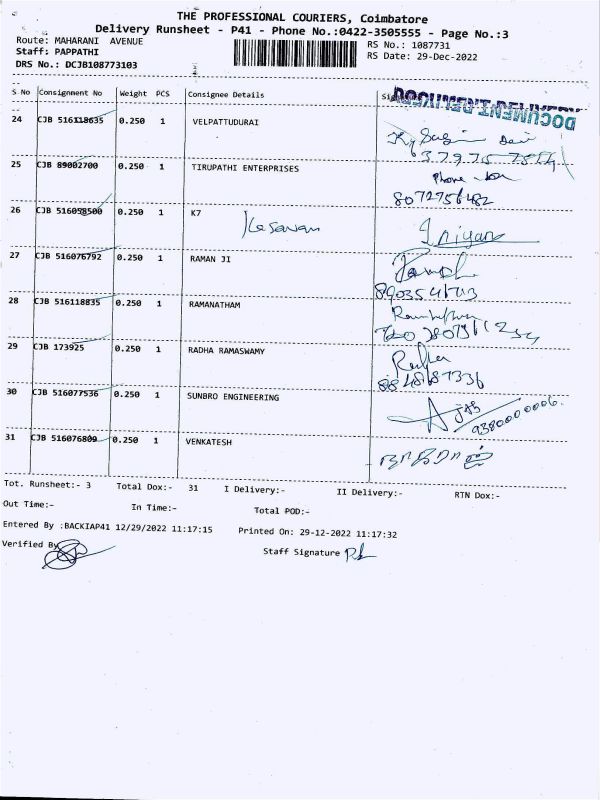 THE PROFESSIONAL COURIERS, Coimbatore
Delivery Runsheet - P41 - Phone No.:0422-3505555 - Page No.:3
Route: MAHARANI AVENUE
RS No.: 1087731
Staff: PAPPATHI
RS Date: 29-Dec-2022
DRS No.: DCJB108773103
S No Consignment No Weight PCS Consignee Details
DOCUMENT DELIVERY
24 CJB 516118635 0.250 1 VELPATTUDURAI
25 CJB 89002700 0.250 1 TIRUPATHI ENTERPRISES
8072756482
26 CJB 516058500 0.250 1 K7 Kesavan Iniyan
27 CJB 516076792 0.250 1 RAMAN JI
28 CJB 516118835 0.250 1 RAMANATHAM
29 CJB 173925 0.250 1 RADHA RAMASWAMY
Radha
8848687336
30 CJB 516077536 0.250 1 SUNBRO ENGINEERING
9380000006.
31 CJB 516076809 0.250 1 VENKATESH
Tot. Runsheet:- 3 Total Dox:- 31 I Delivery:- II Delivery:- RTN Dox:-
Out Time:- In Time:- Total POD:-
Entered By :BACKIAP41 12/29/2022 11:17:15 Printed On: 29-12-2022 11:17:32
Verified By
Staff Signature